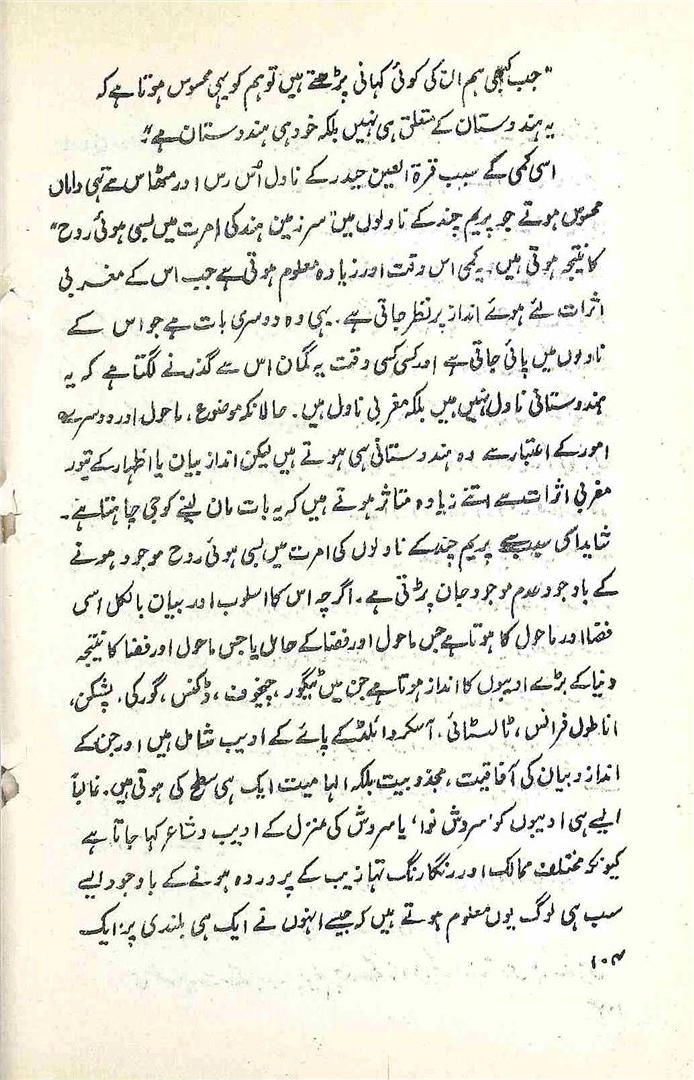 "جب کبھی ہم ان کی کوئی کہانی پڑھتے ہیں تو ہم کو یہی محسوس ہوتا ہے کہ
یہ ہندوستان کے متعلق ہی نہیں بلکہ خود ہی ہندوستان ہے"۔
اسی کمی کے سبب قرۃ العین حیدر کے ناول اُس رس اور مٹھاس سے تہی داماں
محسوس ہوتے جو پریم چند کے ناولوں میں "سر زمین ہند کی امرت میں بسی ہوئی روح"
کا نتیجہ ہوتی ہیں۔ یہ کمی اس وقت اور زیادہ معلوم ہوتی ہے جب اس کے مغربی
اثرات لئے ہوئے انداز پر نظر جاتی ہے۔ یہی وہ دوسری بات ہے جو اس کے
ناولوں میں پائی جاتی ہے اور کسی کسی وقت یہ گمان اس سے گذرنے لگتا ہے کہ یہ
ہندوستانی ناول نہیں ہیں بلکہ مغربی ناول ہیں۔ حالانکہ موضوع، ماحول اور دوسرے
امور کے اعتبار سے وہ ہندوستانی ہی ہوتے ہیں لیکن انداز بیان یا اظہار کے تیور
مغربی اثرات سے اتنے زیادہ متاثر ہوتے ہیں کہ یہ بات مان لینے کو جی چاہتا ہے۔
شاید اسی سبب سے پریم چند کے ناولوں کی امرت میں بسی ہوئی روح موجود ہونے
کے باوجود عدم موجود جان پڑتی ہے۔ اگرچہ اس کا اسلوب اور بیان بالکل اسی
فضا اور ماحول کا ہوتا ہے جس ماحول اور فضا کے حامل یا جس ماحول اور فضا کا نتیجہ
دنیا کے بڑے ادیبوں کا انداز ہوتا ہے جن میں ٹیگور، چیخوف، ڈکنس، گورکی، پشکن،
اناطول فرانس، ٹالسٹائی، آسکر وائلڈ کے پائے کے ادیب شامل ہیں اور جن کے
انداز و بیان کی آفاقیت، مجذوبیت بلکہ الہامیت ایک ہی سطح کی ہوتی ہیں۔ غالباً
ایسے ہی ادیبوں کو 'سروش نوا' یا سروش کی منزل کے ادیب و شاعر کہا جاتا ہے
کیونکہ مختلف ممالک اور رنگا رنگ تہازیب کے پروردہ ہونے کے باوجود ایسے
سب ہی لوگ یوں معلوم ہوتے ہیں کہ جیسے انہوں نے ایک ہی بلندی پر، ایک
۱۰۴